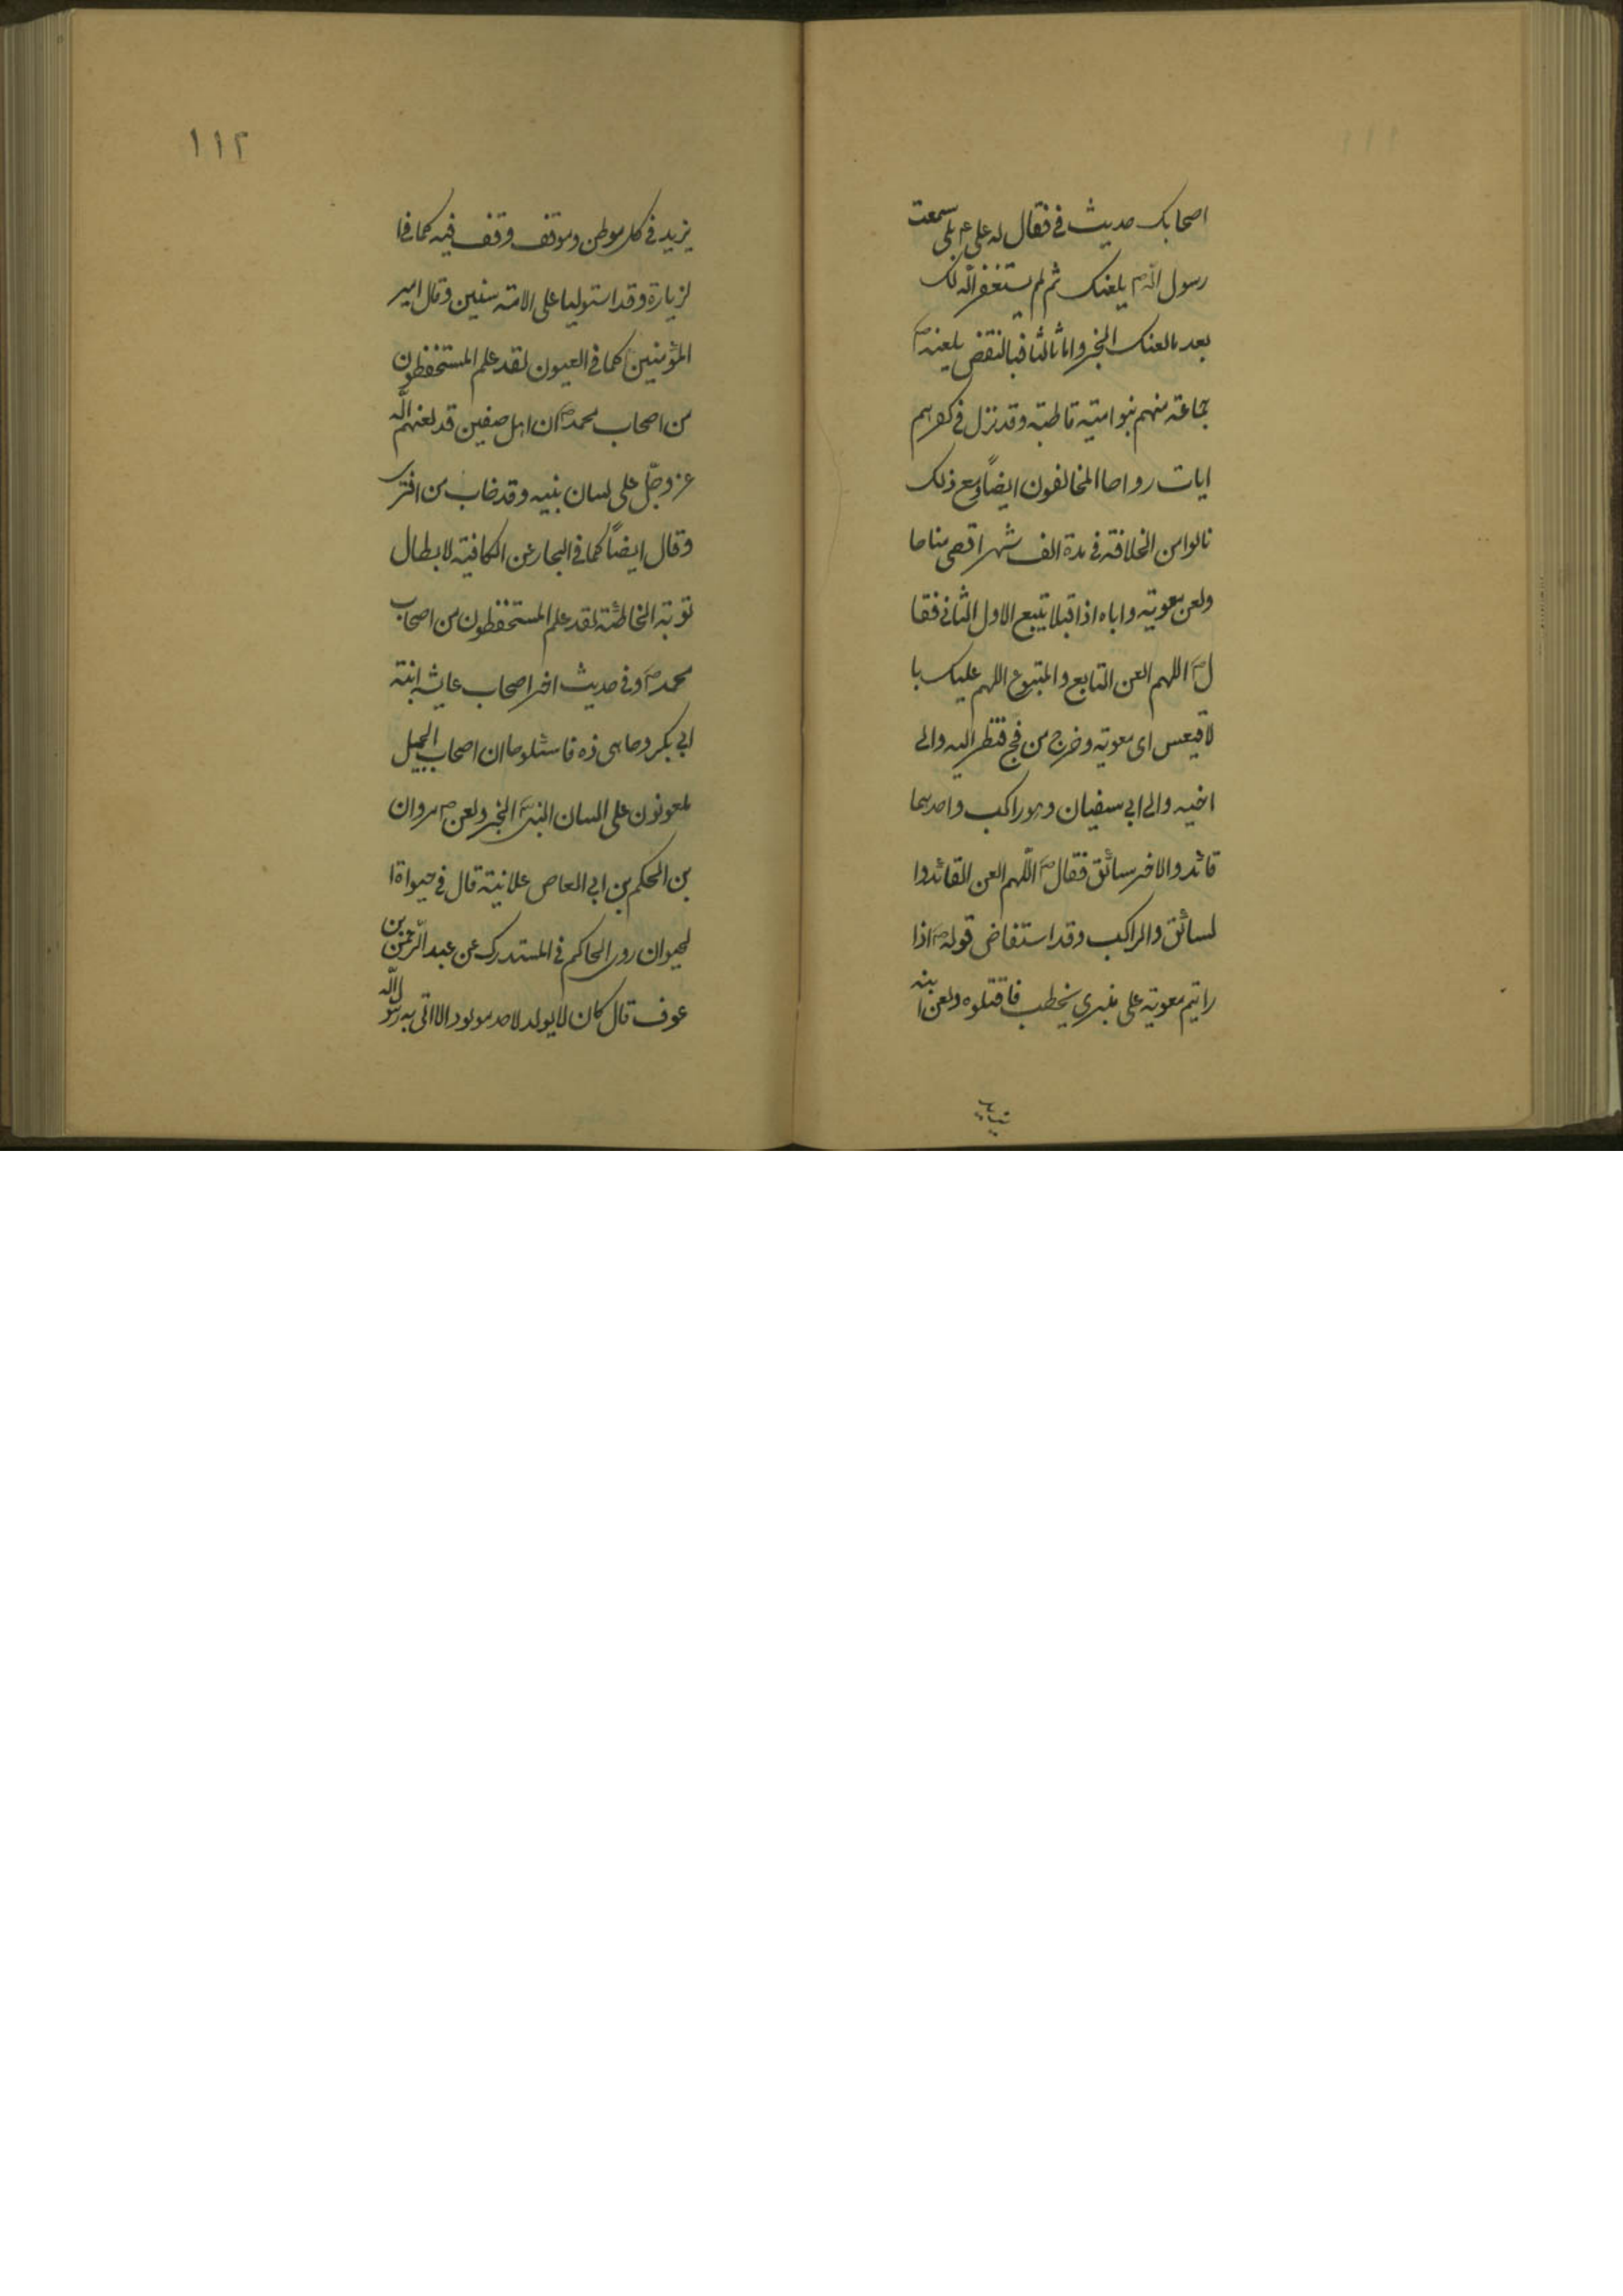 اصحابك حديث فى فقال له على ع بلى سمعت
رسول الله ص يلعنك ثم لم يستغفر الله لك
بعد ما لعنك الخبر واما ثالثا فبالنقض بلعنه ص
جماعة منهم بنو امية قاطبة وقد نزل فى كفرهم
ايات رواها المخالفون ايضاً ومع ذلك
نالوا من الخلافة فى مدة الف شهر اقصى مناها
ولعن معوية واباه اذ اقبلا يتبع الاول الثانى فقا
ل ص اللهم العن التابع والمتبوع اللهم عليك با
لاقيعس اى معوية وخرج من فج فنظر اليه والى
اخيه والى ابى سفيان وهو راكب واحدهما
قائد والاخر سائق فقال ص اللّهم العن القائد وا
لسائق والراكب وقد استفاض قوله ص اذا
رايتم معوية على منبرى يخطب فاقتلوه ولعن ابنه
١١٢
يزيد فى كل موطن وموقف وقف فيه كما فى ا
لزيارة وقد استوليا على الامة سنين وقال امير
المؤمنين كما فى العيون لقد علم المستحفظون
من اصحاب محمد ص ان اهل صفين قد لعنهم الله
عز وجلّ على لسان نبيه وقد خاب من افترى
وقال ايضاً كما فى البحار عن الكافية لابطال
توبة الخاطئة لقد علم المستحفظون من اصحاب
محمد ص وفى حديث اخر اصحاب عايشة ابنة
ابى بكر وها هى ذه فاسئلوها ان اصحاب الجمل
ملعونون على السان النبى ص الخبر ولعن ص مروان
بن الحكم بن ابى العاص علانية قال فى حيوة ا
لحيوان روى الحاكم فى المستدرك عن عبد الرّحمن بن
عوف قال كان لا يولد لاحد مولود الا اتى به رسول الله